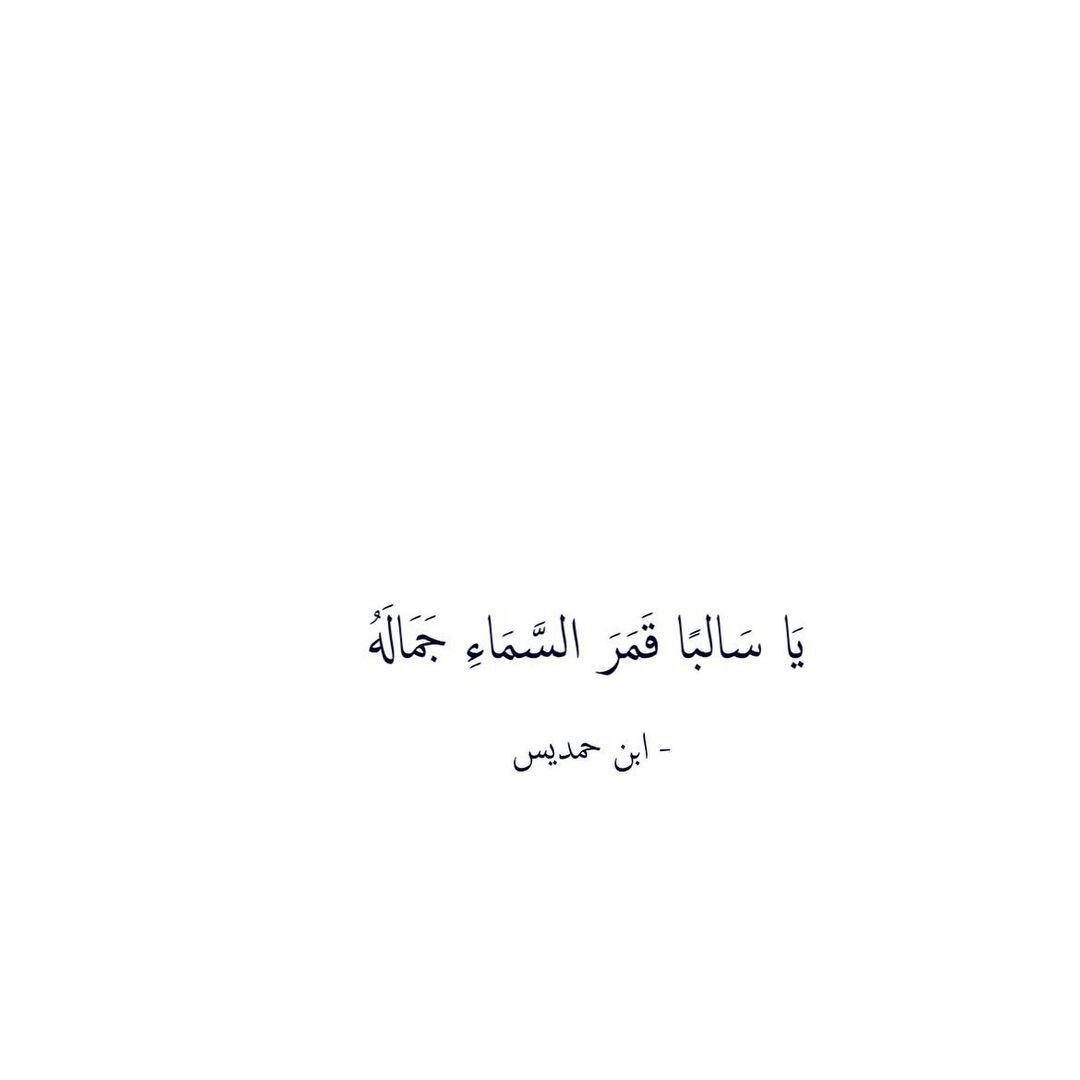 يَا سَالبًا قَمَرَ السَّمَاءِ جَمَالَهُ
- ابن حمديس